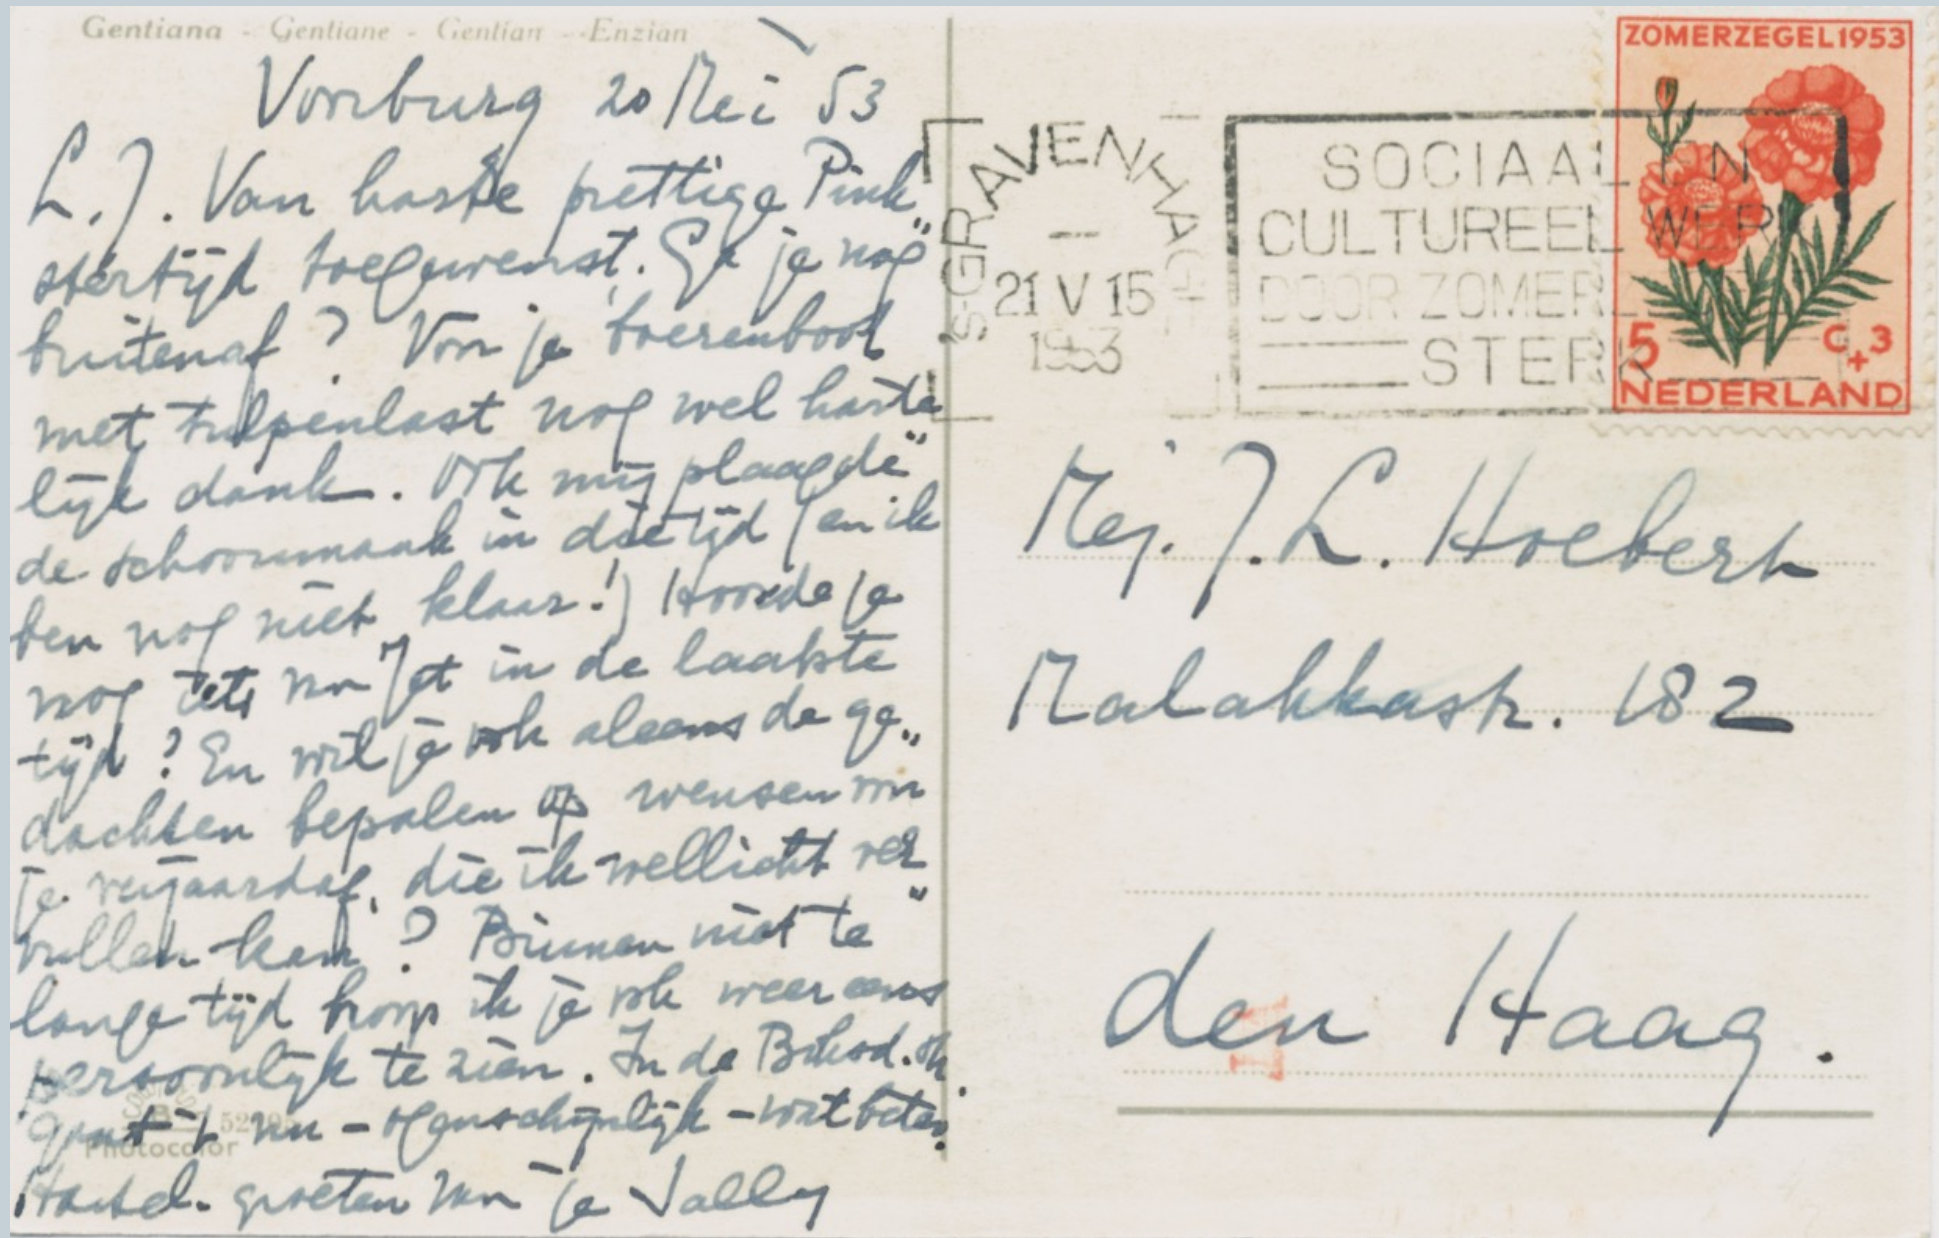 Gentiana - Gentiane - Gentian - Enzian
Voorburg 20 Mei 53
L. J. Van harte prettige Pink„
stertijd toegewenst. Ga je nog
buitenaf? Voor je boerenboot
met tulpenlast nog wel harte„
lijk dank. Ook mij plaagde
de schoonmaak in die tijd (en ik
ben nog niet klaar!) Hoorde je
nog iets van Jet in de laatste
tijd? En wil je ook aleens de ge„
dachten bepalen op wensen voor
je verjaardag, die ik wellicht ver„
vullen kan? Binnen niet te
lange tijd hoop ik je ook weer eens
persoonlijk te zien. In de
gaat 't nu - ogenschijnlijk - wat beter.
Hartel. groeten van je Vally
Photocolor
'S-GRAVENHAGE
21 V 15
1953
SOCIAAL EN
CULTUREEL WERK
DOOR ZOMERZEGELS
STERK
ZOMERZEGEL 1953
5 c + 3
NEDERLAND
Mej. J. L. Hoebert
Malakkastr. 182
den Haag.